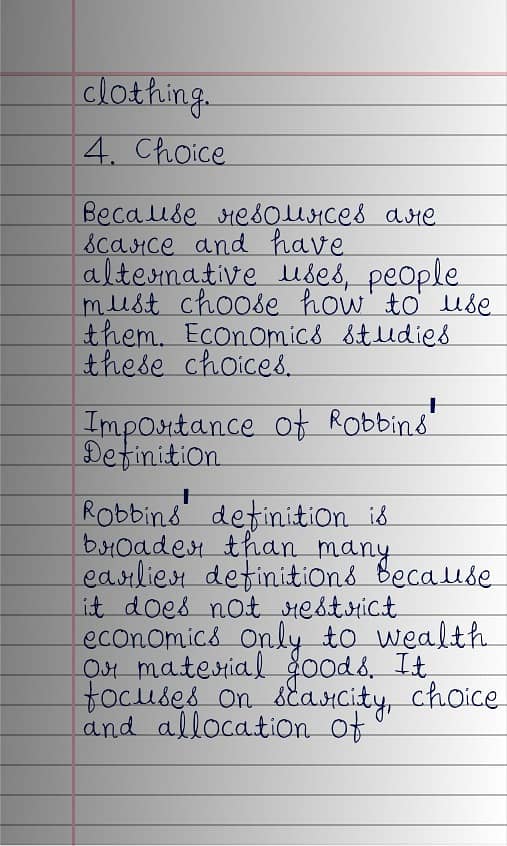 clothing.
4. Choice
Because resources are
scarce and have
alternative uses, people
must choose how to use
them. Economics studies
these choices.
Importance of Robbins'
Definition
Robbins' definition is
broader than many
earlier definitions because
it does not restrict
economics only to wealth
or material goods. It
focuses on scarcity, choice
and allocation of